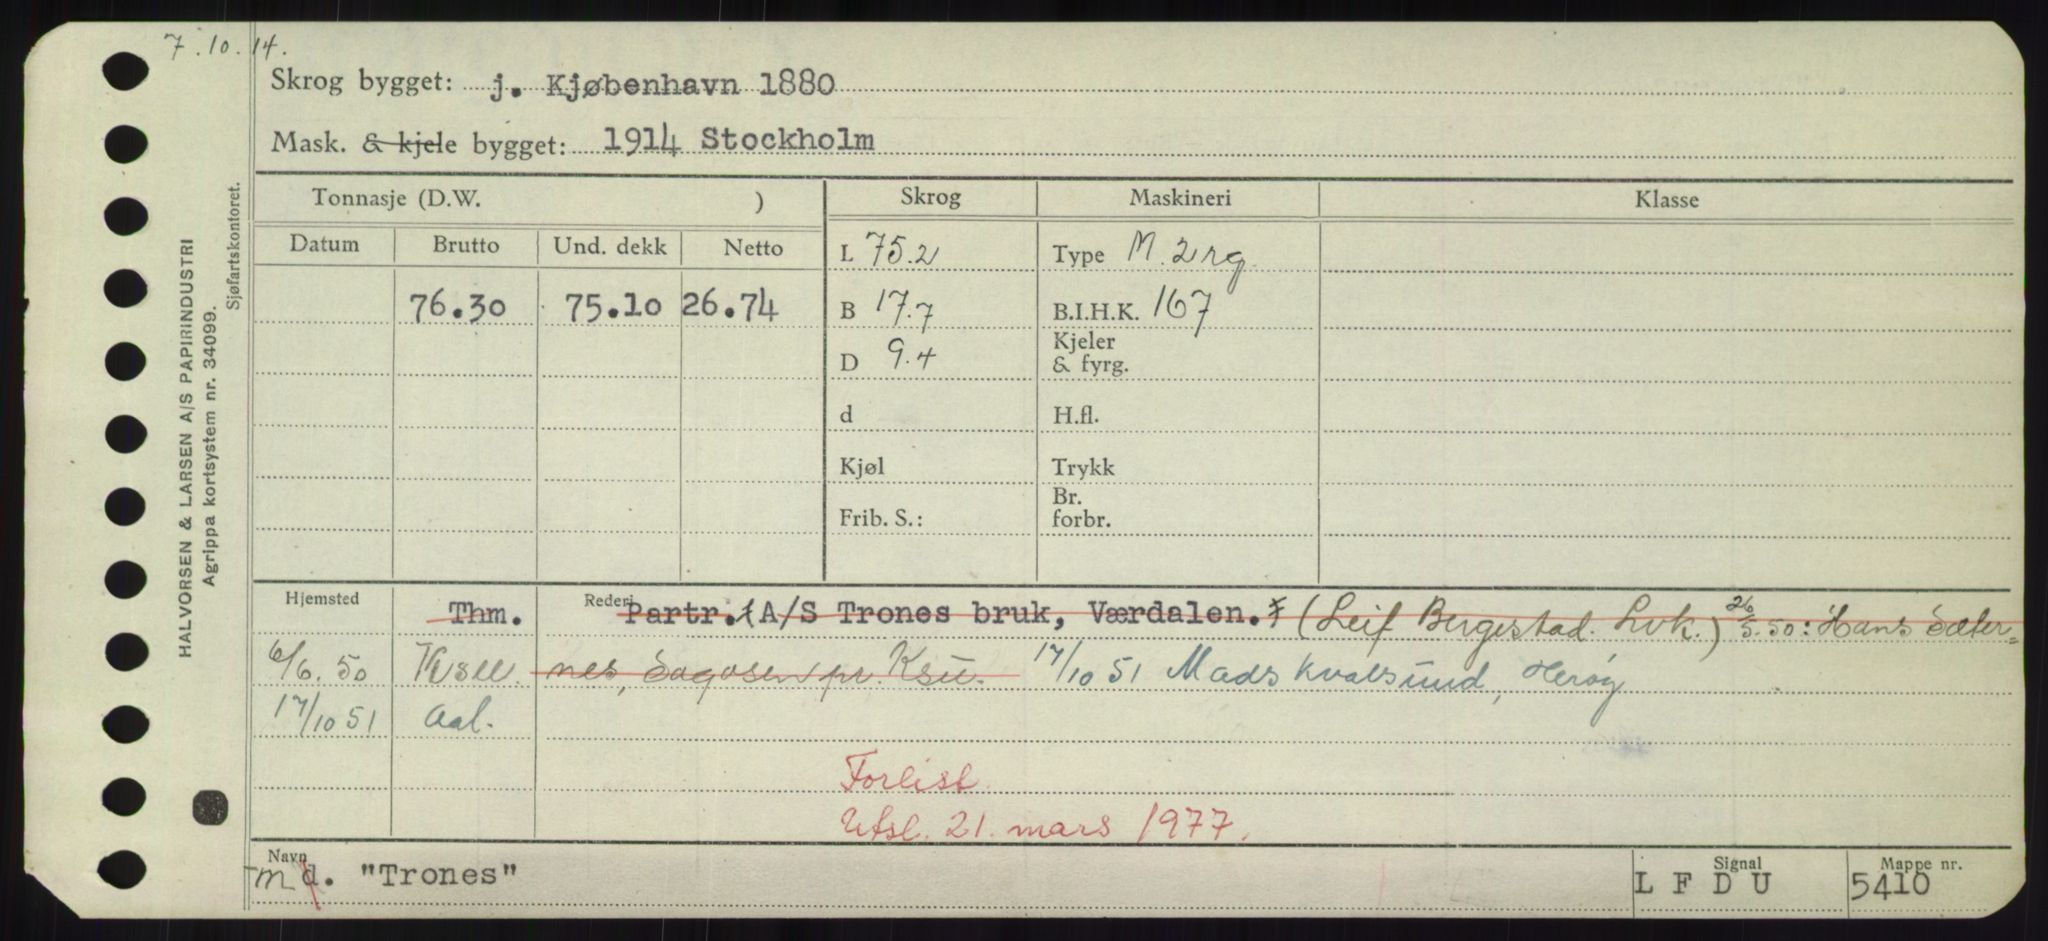 7.10.14.
Skrog bygget: j. Kjøbenhavn 1880
Mask. & kjele bygget: 1914 Stockholm
HALVORSEN & LARSEN A/S PAPIRINDUSTRI
Agrippa kortsystem nr. 34099.
Sjøfartskontoret.
Tonnasje (D.W. ) Skrog Maskineri Klasse
Datum Brutto Und. dekk Netto
L 75.2 Type M. 2 rg.
76.30 75.10 26.74 B 17.7 B.I.H.K. 167
D 9.4 Kjeler & fyrg.
d H.fl.
Kjøl Trykk
Frib. S.: Br. forbr.
Hjemsted Thm. Rederi Partr. (A/S Trones bruk, Værdalen.) (Leif Bergestad. Lvk.) 26/5.50: Hans Sæter=
6/6.50 Ksu. nes, Sagosen pr. Ksu. 17/10 51 Mads Kvalsund, Herøy
17/10 51 Aal.
Forlist.
Utsl. 21. mars 1977.
Navn m d. "Trones" Signal L F D U Mappe nr. 5410